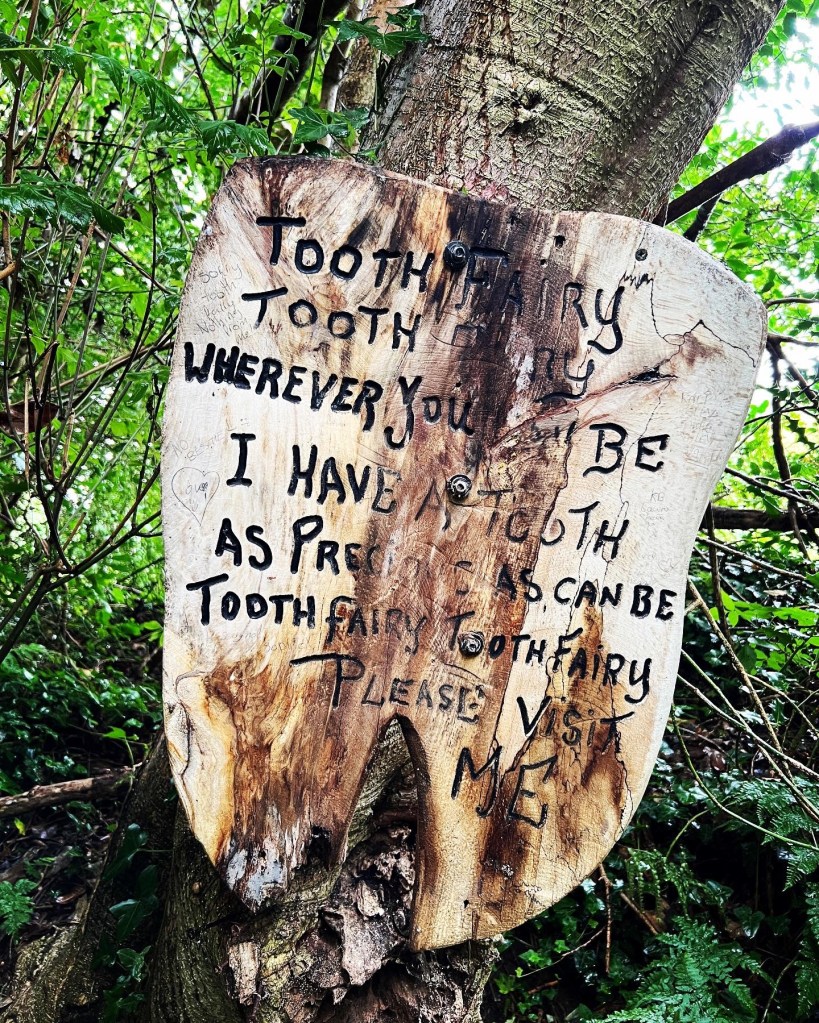 TOOTH FAIRY
TOOTH
WHEREVER YOU BE
I HAVE A TOOTH
AS PRECIOUS AS CAN BE
TOOTH FAIRY TOOTH FAIRY
PLEASE VISIT
ME